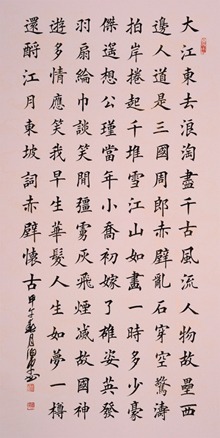 大江東去浪淘盡千古風流人物故壘西
邊人道是三國周郎赤壁亂石穿空驚濤
拍岸捲起千堆雪江山如畫一時多少豪
傑遙想公瑾當年小喬初嫁了雄姿英發
羽扇綸巾談笑閒彊虜灰飛煙滅故國神
遊多情應笑我早生華髮人生如夢一樽
還酹江月東坡詞赤壁懷古甲午月書